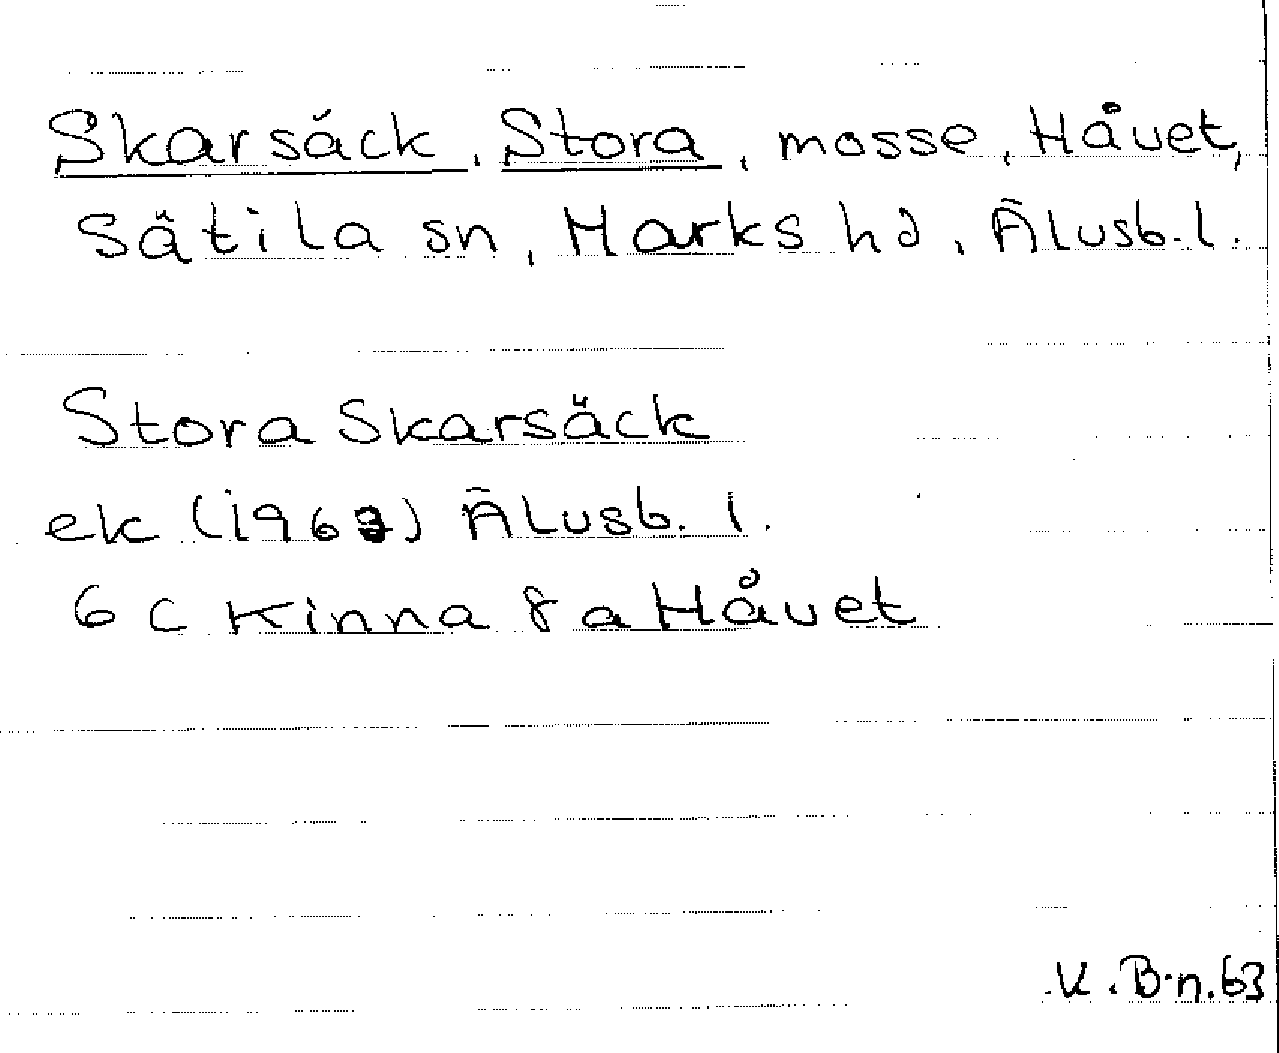 Skarsäck, Stora, mosse, Håvet,
Sätila sn, Marks hd, Älvsb. l.
Stora Skarsäck
ek (1963) Älvsb. l.
6 C Kinna 8 a Håvet
V. B-n. 63